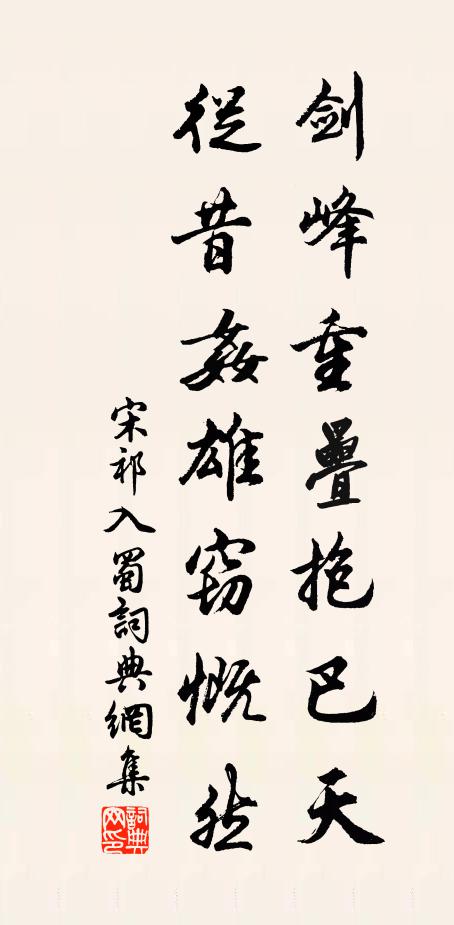 劍峰重疊抱巴天
從昔姦雄窃慨然
宋祁入蜀詞典網集
詞典
网印